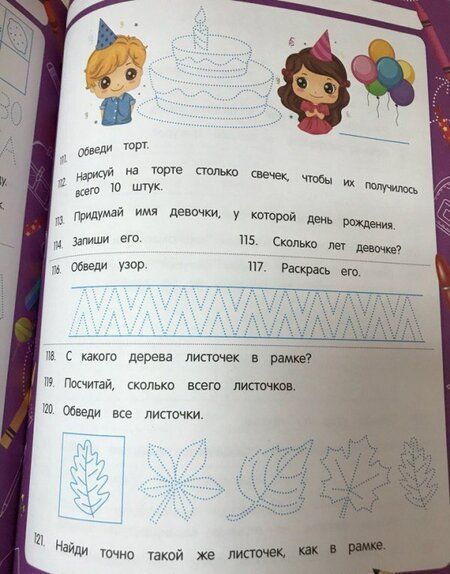 111. Обведи торт.
112. Нарисуй на торте столько свечек, чтобы их получилось
всего 10 штук.
113. Придумай имя девочки, у которой день рождения.
114. Запиши его. 115. Сколько лет девочке?
116. Обведи узор. 117. Раскрась его.
118. С какого дерева листочек в рамке?
119. Посчитай, сколько всего листочков.
120. Обведи все листочки.
121. Найди точно такой же листочек, как в рамке.